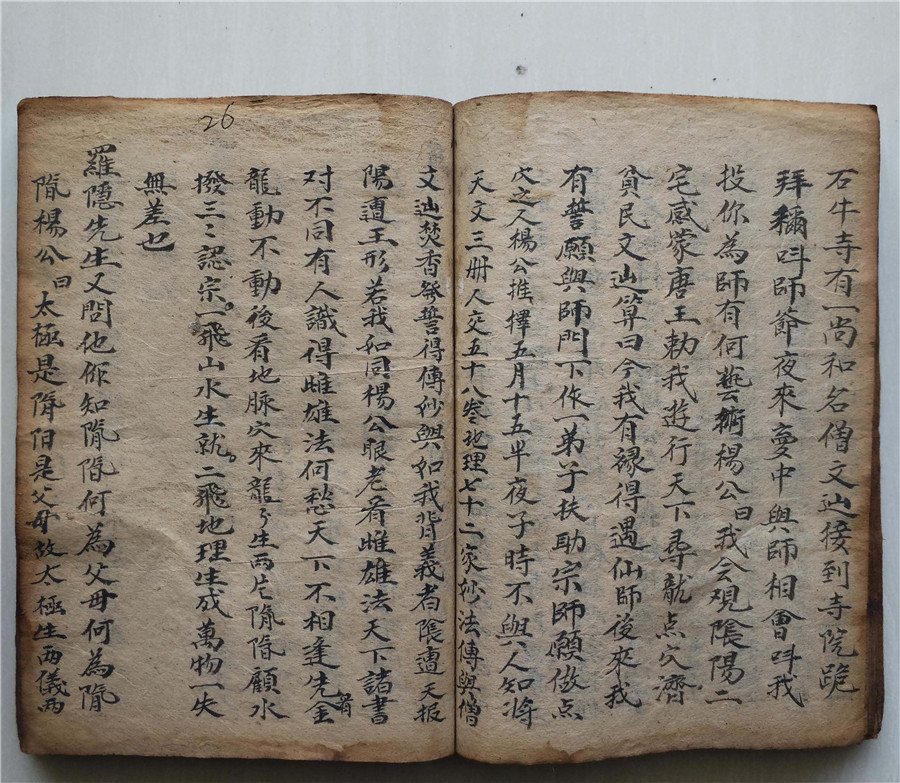 石牛寺有一尚和名僧文辿接到寺院跪
拜稱呌師爺夜來夢中與師相會呌我
投你為師有何藝術楊公曰我会观陰陽二
宅感蒙唐王勅我遊行天下尋龍点穴濟
貧民文辿算曰今我有緣得遇仙師後來我
有誓願與師門下作一弟子扶助宗師願做点
穴之人楊公推擇五月十五半夜子時不與人知將
天文三册人交五十八卷地理七十二家妙法傳與僧
文辿焚香發誓得傳妙與如我背義者陰遭天报
陽遭王形若我如同楊公眼老看雌雄法天下諸書
对不同有人識得雌雄法何愁天下不相逢先金
龍動不動後看地脉穴來龍々生兩片陰陰顧水
撥三々認宗一飛山水生就二飛地理生成萬物一失
無差也
26
羅隱先生又問他你知陰陰何為父母何為陰
陰楊公曰太極是陰阳是父母故太極生兩儀兩